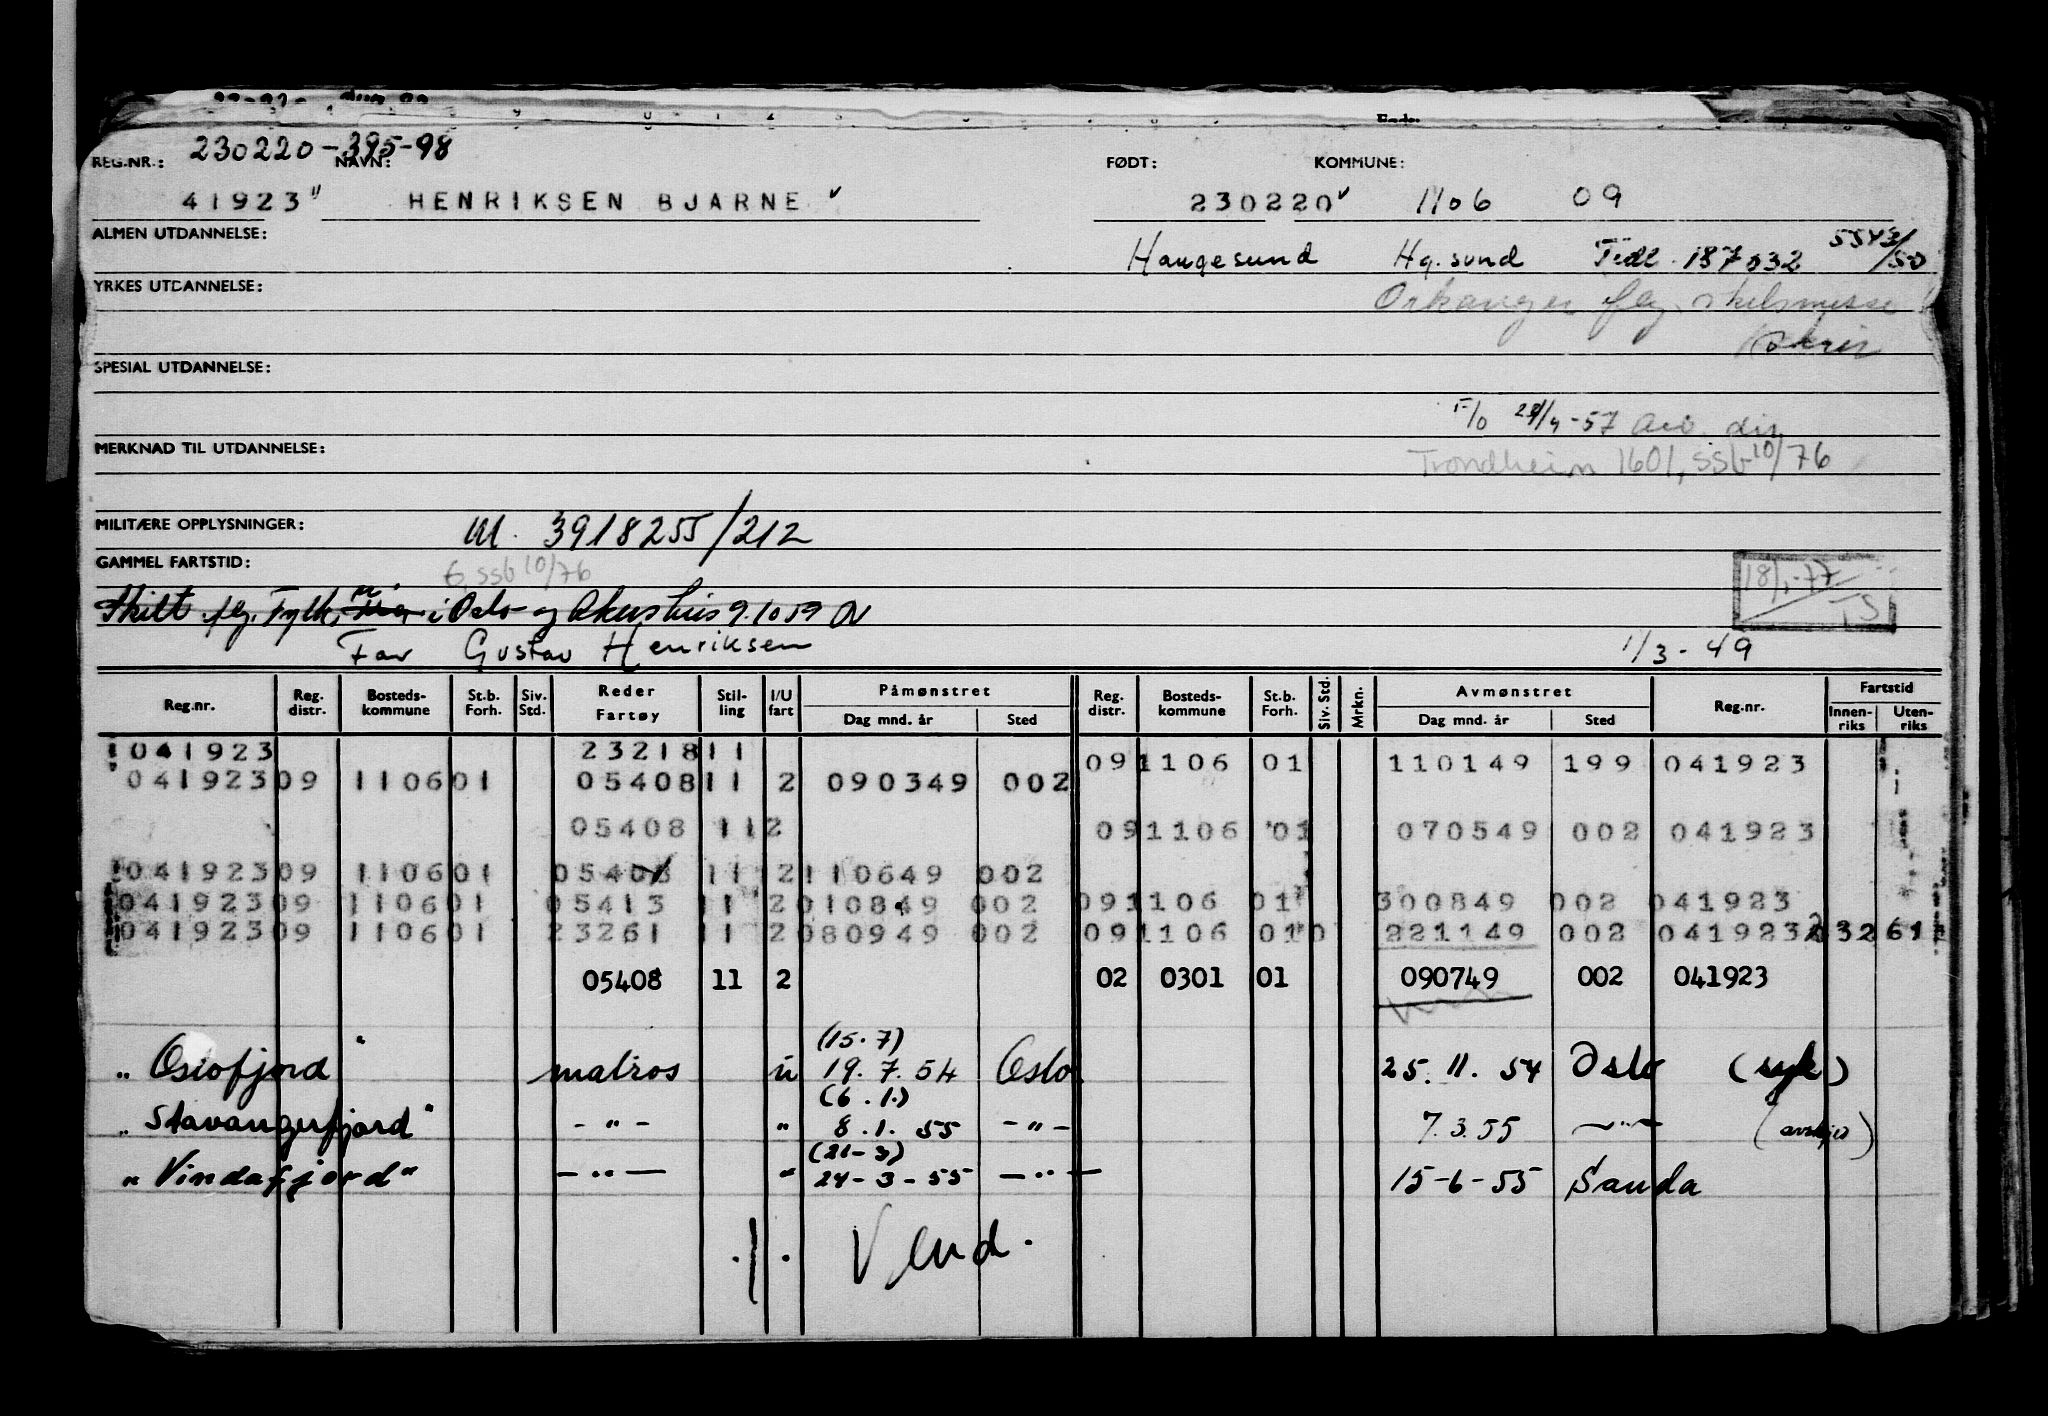 230220-395-98
REG.NR.: NAVN: FØDT: KOMMUNE:
41923 HENRIKSEN BJARNE 230220 1106 09
ALMEN UTDANNELSE:
Haugesund Hg.sund Tidl. 187032 5543/50
YRKES UTDANNELSE:
Orkanger flg.
SPESIAL UTDANNELSE:
F/O 29/4-57
MERKNAD TIL UTDANNELSE:
Trondheim 1601, SSb 10/76
MILITÆRE OPPLYSNINGER: M. 3918255/212
GAMMEL FARTSTID: SSb 10/76
18/1-77
TS
Skilt flg. Fylk. i Oslo og Akershus 9.10.59
Far Gustav Henriksen 1/3-49
Reg.nr. Reg. distr. Bosteds-kommune St.b. Forh. Siv. Std. Reder Fartøy Stil-ling I/U fart Påmønstret Dag mnd. år Sted Reg. distr. Bosteds-kommune St.b. Forh. Siv. Std. Mrkn. Avmønstret Dag mnd. år Sted Reg.nr. Fartstid Innen-riks Uten-riks
041923 23218 11 09 1106 01 110149 199 041923
041923 09 1106 01 05408 11 2 090349 002
05408 11 2 09 1106 01 070549 002 041923
041923 09 1106 01 05408 11 2 110649 002
041923 09 1106 01 05413 11 2 010849 002 09 1106 01 300849 002 041923
041923 09 1106 01 23261 11 2 080949 002 09 1106 01 0 221149 002 041923 032 61
05408 11 2 02 0301 01 090749 002 041923
(15.7)
"Oslofjord" matros u 19.7.54 Oslo 25.11.54 Oslo (syk)
(6.1.)
"Stavangerfjord" -"- " 8.1.55 -"- 7.3.55 -"- (avskjed)
(21-3)
"Vindafjord" -"- " 24-3-55 -"- 15-6-55 Sauda
./. Vend.